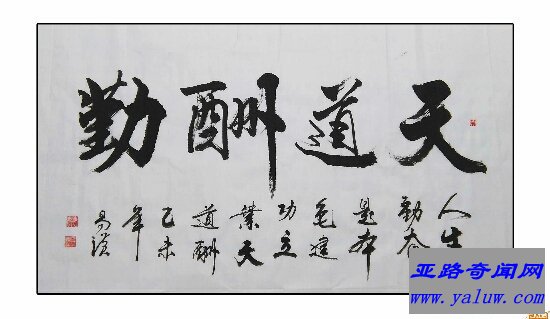 天道酬勤
人生
勤奋
是本
色建
功立
業天
道酬
乙未
年
亚路奇闻网
www.yaluw.com